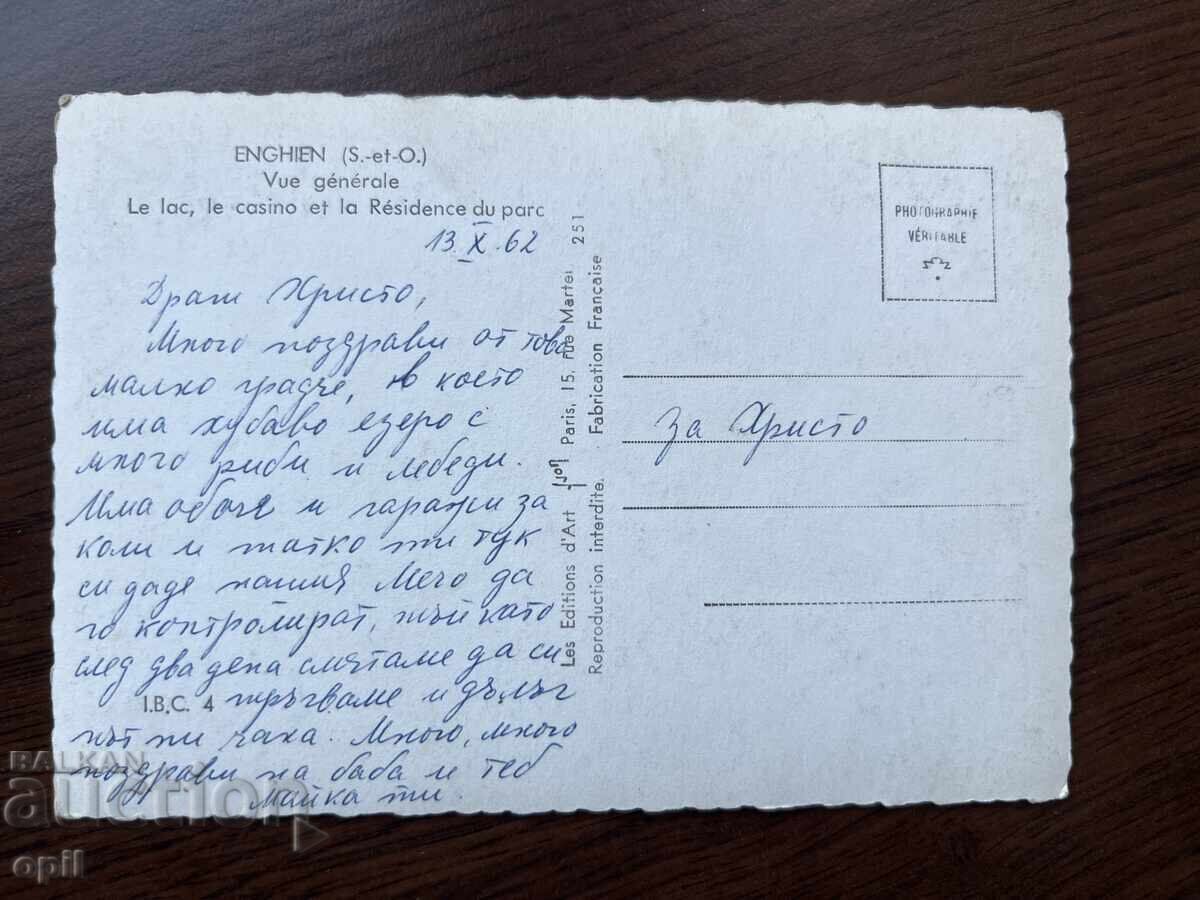 ENGHIEN (S.-et-O.)
Vue générale
Le lac, le casino et la Résidence du parc
13.X.62
Драги Христо,
Много поздрави от това
малко градче, в което
има хубаво езеро с
много риби и лебеди.
Има обаче и гаражи за
коли и татко ти тук
си даде нашия Мечо да
го контролират, тъй като
след два дена смятаме да си
тръгваме и дълъг
път ни чака. Много, много
поздрави на баба и теб
Майка ти.
I.B.C. 4
Les Editions d'Art Yvon Paris, 15, rue Martel 251
Reproduction interdite. Fabrication Française
PHOTOGRAPHIE
VÉRITABLE
За Христо
BALKAN
auction
opil